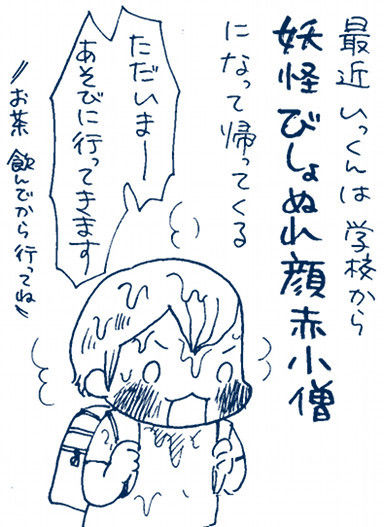 最近 いっくんは 学校から
妖怪びしょぬれ顔赤小僧
になって帰ってくる
ただいまー
あそびに行ってきます
お茶 飲んでから行ってね